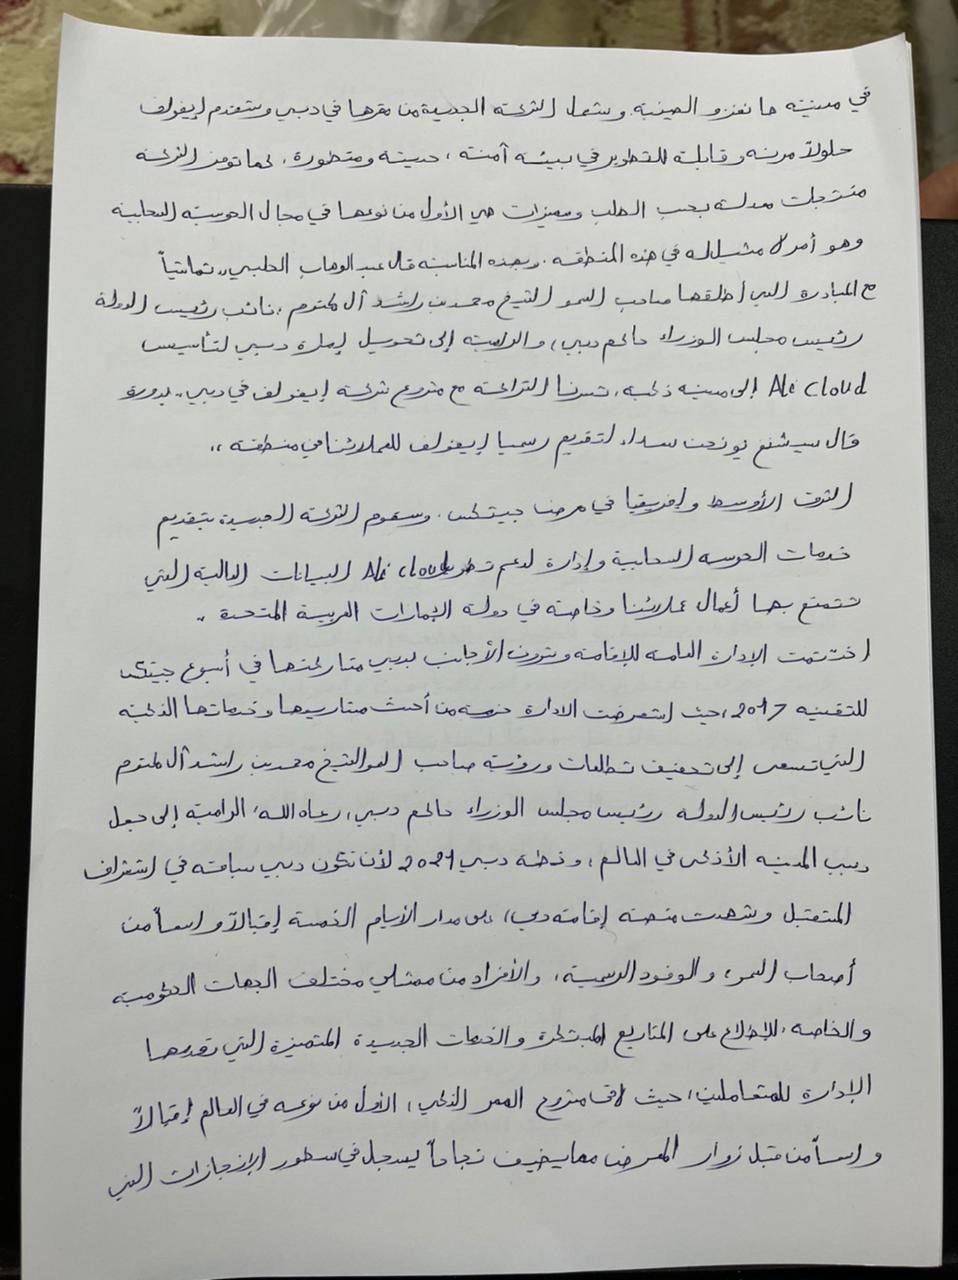 في مدينة هانغزو الصينية. وستعمل الشركة الجديدة من مقرها في دبي وستقدم إيفولف
حلولاً مرنة وقابلة للتطوير في بيئة آمنة ، حديثة ومتطورة ، كما توفر الشركة
منتجات معدلة بحسب الطلب وميزات هي الأول من نوعها في مجال الحوسبة السحابية
وهو أمر لا مثيل له في هذه المنطقة . وبهذه المناسبة قال عبد الوهاب الحلبي ,, تماشياً
مع المبادرة التي أطلقها صاحب السمو الشيخ محمد بن راشد آل مكتوم ، نائب رئيس الدولة
رئيس مجلس الوزراء حاكم دبي ، والرامية إلى تحويل إمارة دبي لتأسيس
Ali Cloud إلى مدينة ذكية ، تسرنا الشراكة مع مشروع شركة إيفولف في دبي ,, بدورة
قال سيشنغ يو نحن سعداء لتقديم رسميا إيفولف للعملائنا في منطقة ,,
الشرق الأوسط وإفريقيا في معرض جيتكس . وستقوم الشركة الجديدة بتقديم
خدمات الحوسبة السحابية وإدارة لدعم تطور Ali cloud البيانات العالية التي
تتمتع بها أعمال عملائنا وخاصة في دولة الإمارات العربية المتحدة ,,
اختتمت الإدارة العامة للإقامة وشؤون الأجانب بدبي مشاركتها في أسبوع جيتكس
للتقنية 2017 ، حيث استعرضت الادارة حزمة من أحدث مشاريعها وخدماتها الذكية
التي تسعى إلى تحقيق تطلعات ورؤية صاحب السمو الشيخ محمد بن راشد آل مكتوم
نائب رئيس الدولة رئيس مجلس الوزراء حاكم دبي ، رعاه الله ، الرامية إلى جعل
دبي المدينة الأذكى في العالم ، وخطة دبي 2021 لأن تكون دبي سباقة في استشراف
المستقبل وشهدت منصة إقامة دبي ، على مدار الأيام الخمسة إقبالاً واسعاً من
أصحاب السمو ، والوفود الرسمية ، والأفراد من ممثلي مختلف الجهات الحكومية
والخاصة ، للإطلاع على المشاريع المبتكرة والخدمات الجديدة المتميزة التي تقدمها
الإدارة للمتعاملين ، حيث لاقى مشروع الممر الذكي ، الأول من نوعه في العالم إقبالاً
واسعاً من قبل زوار المعرض مما يضيف نجاحاً يسجل في سطور الإنجازات التي